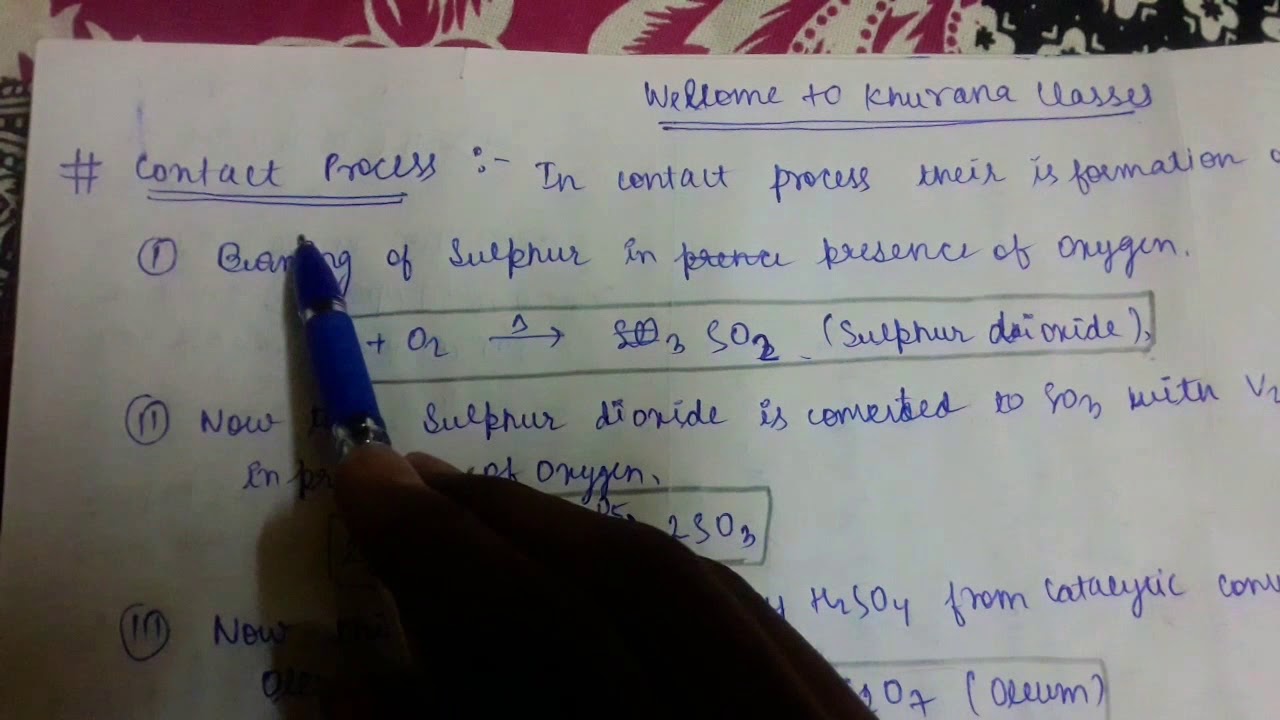 Welcome to Khurana Classes
# Contact Process :- In contact process their is formation
① of Sulphur in presence of oxygen.
+ O2 Δ→ SO2 (Sulphur dioxide),
② Now Sulphur dioxide is converted to SO3 with V2
in of oxygen,
2SO3
③ Now H2SO4 from catalytic
O7 (Oleum)